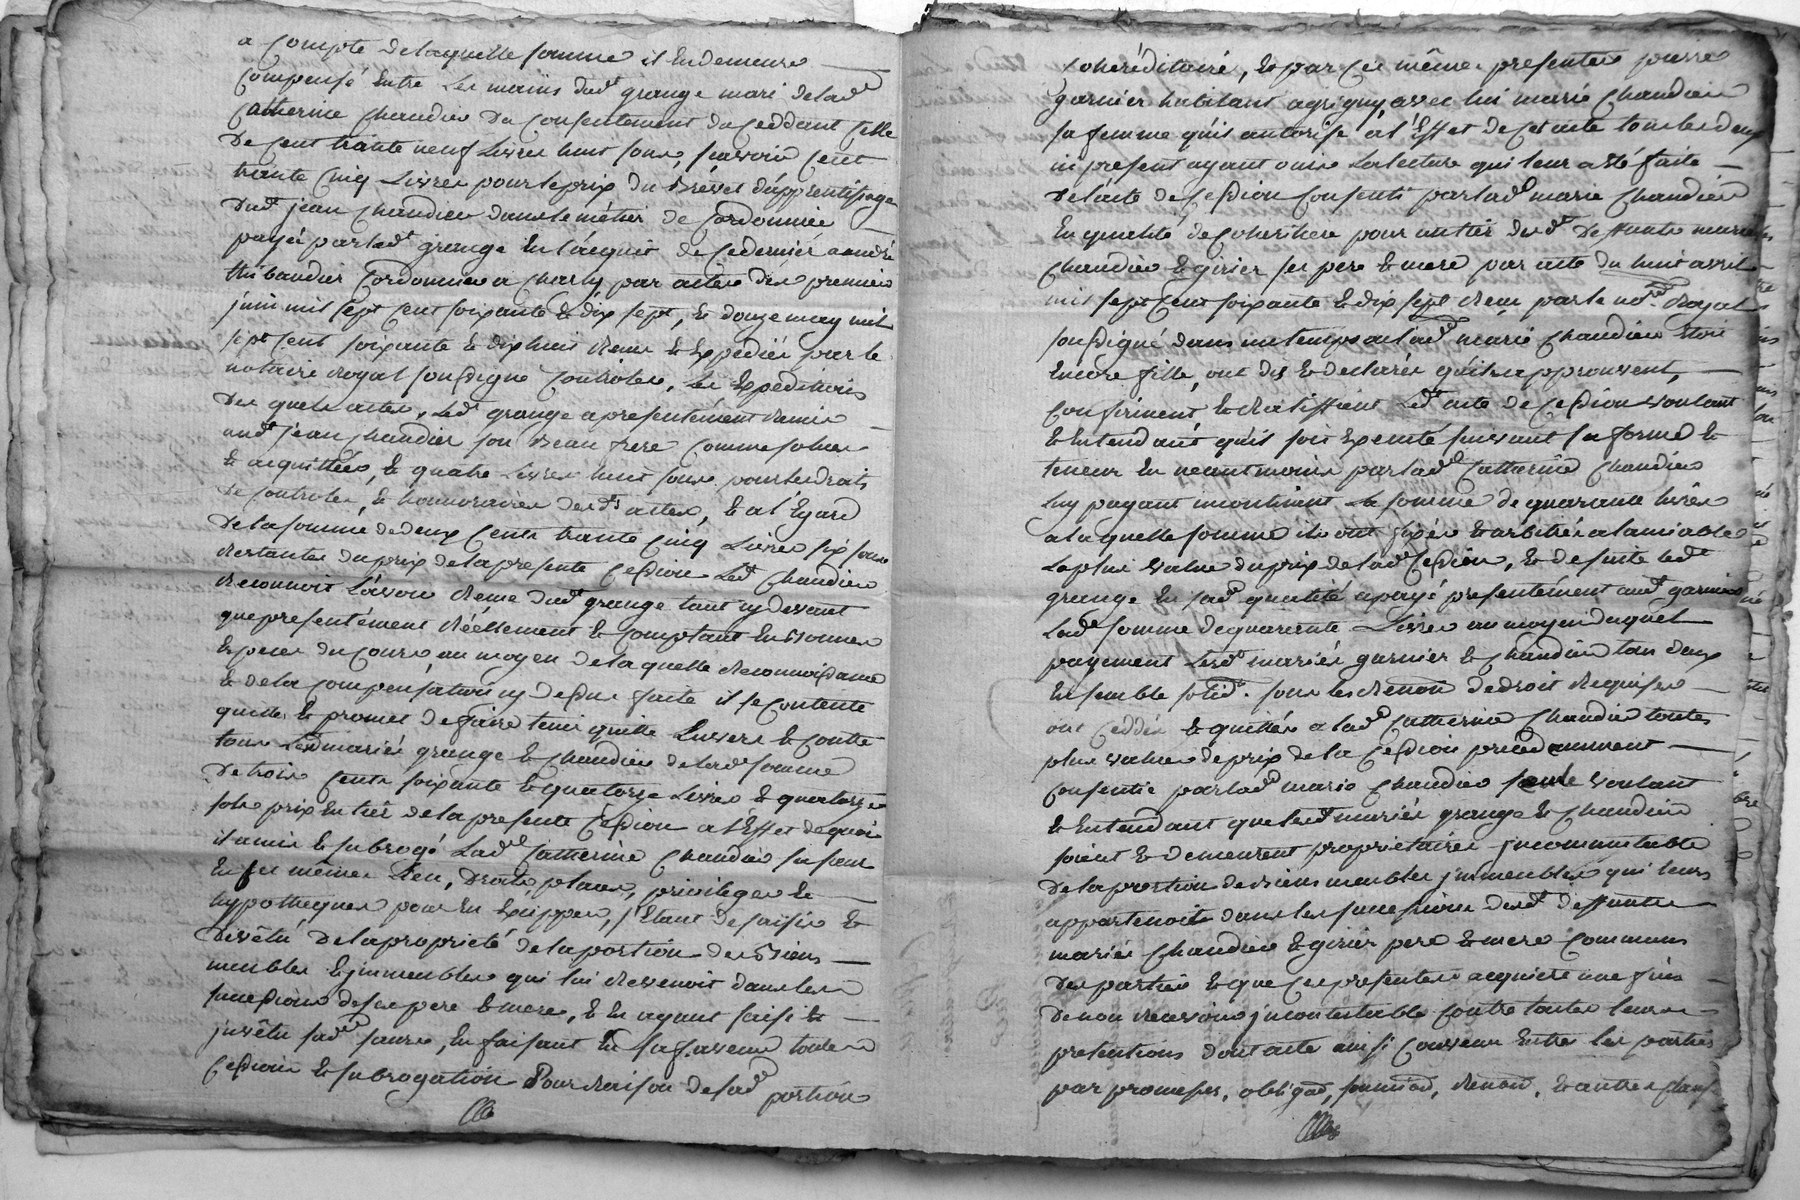 a compte de laquelle somme il en demeure
compensé entre les mains dud grange mari de lad
Catherine Chaudier du consentement du Ceddant celle
De cent trante neuf Livres huit sous, scavoir cent
trante cinq Livres pour le prix du Brévet d'apprentissage
Dud jean Chaudier dans le métier de Cordonnier
payée par led grange en l'acquit de ce dernier a andré
thibaudier Cordonnier a Charly par actes des premier
juin mil sept cent soixante & dix sept, & douze may mil
sept cent soixante & dix huit Reçus & Expediés par le
notaire Royal soussigné Controlés, les Expeditions
Des quels actes, led grange a presentément Remis
aud jean Chaudier son Beau frere comme solues
& acquittées, & quatre Livres huit sous pour les droits
de Controles, & honnoraires desds actes, & a l'Egard
De la somme de deux cents trante cinq Livres six sous
Restantes du prix de la presente Cession Led Chaudier
Reconnoit L'avoir Reçue dud grange tant cy devant
que presentément Réellement & comptant En Bonnes
Especes du Cours au moyen de la quelle Reconnoissance
& de la compensation cy dessus faite il se contente
quitte, & promet de faire tenir quitte Envers & contre
tous Lesd mariés grange & Chaudier de lad somme
De trois cents soixante & quatorze Livres & quatorze
sols prix Entier de la presente Cession a l'Effet de quoi
il a mis & subrogé Lad Catherine Chaudier sa sœur
En ses mêmes Lieu, Droits, places, privileges &
hypotheques pour En Exipper, s'Etant desaisie &
devêtu De la propriété de la portion des Biens
meubles & jmmeubles qui lui Revenoit dans les
successions de ses pere & mere, & En ayant saisi &
jnvêtu sad sœur, En faisant En sa faveur toutes
Cession & subrogation Pour Raison de sad portion
cohéréditaire, & par ces mêmes presentes pierre
garnier habitant a grigny avec lui marie Chaudier
sa femme qu'il autorise a l'Effet de cet acte tous les deux
ici present ayant ouie La lecture qui leur a été faite
De l'acte de Cession Consenti par lad marie Chaudier
En qualité de coheritiere pour un tier desd deffunts mariés
Chaudier & girier ses pere & mere par acte du huit avril
mil sept cent soixante & dix sept Reçu par le nore Royal
soussigné dans un temps ou lad marie Chaudier Etoit
encore fille, ont dit & declarés qu'ils approuvent,
confirment & Ratiffient Led acte de Cession voulant
& entendant qu'il soit Executé suivant sa forme &
teneur En neantmoins par lad Catherine Chaudier
luy payant La somme de quarante livres
a la quelle somme ils ont fixés & arbitrés a lamiable
La plus value du prix de lad Cession, & de suite led
grange En sad qualité a payé presentément aud garnier
Lad somme de quarante Livres au moyen duquel
payement Lesd mariés garnier & Chaudier tous deux
Ensemble solid. sous les Renon de droit Requises
ont ceddés & quittés a lad Catherine Chaudier toutes
plus values de prix de la Cession precedamment
consentie par lad marie Chaudier seule voulant
& entendant que lesd mariés grange & Chaudier
soient & demeurent proprietaires jncommutable
De la portion des Biens meubles jmmeubles qui leurs
appartenoit dans les successions desd deffunts
mariés Chaudier & girier pere & mere communs
Des parties & que ces presentes acquiere une fin
De non Recevoir jncontestable contre toutes leurs
pretentions dont acte ainsi convenu Entre les parties
par promesses, obligaon, soumion, Renon, & autres claus